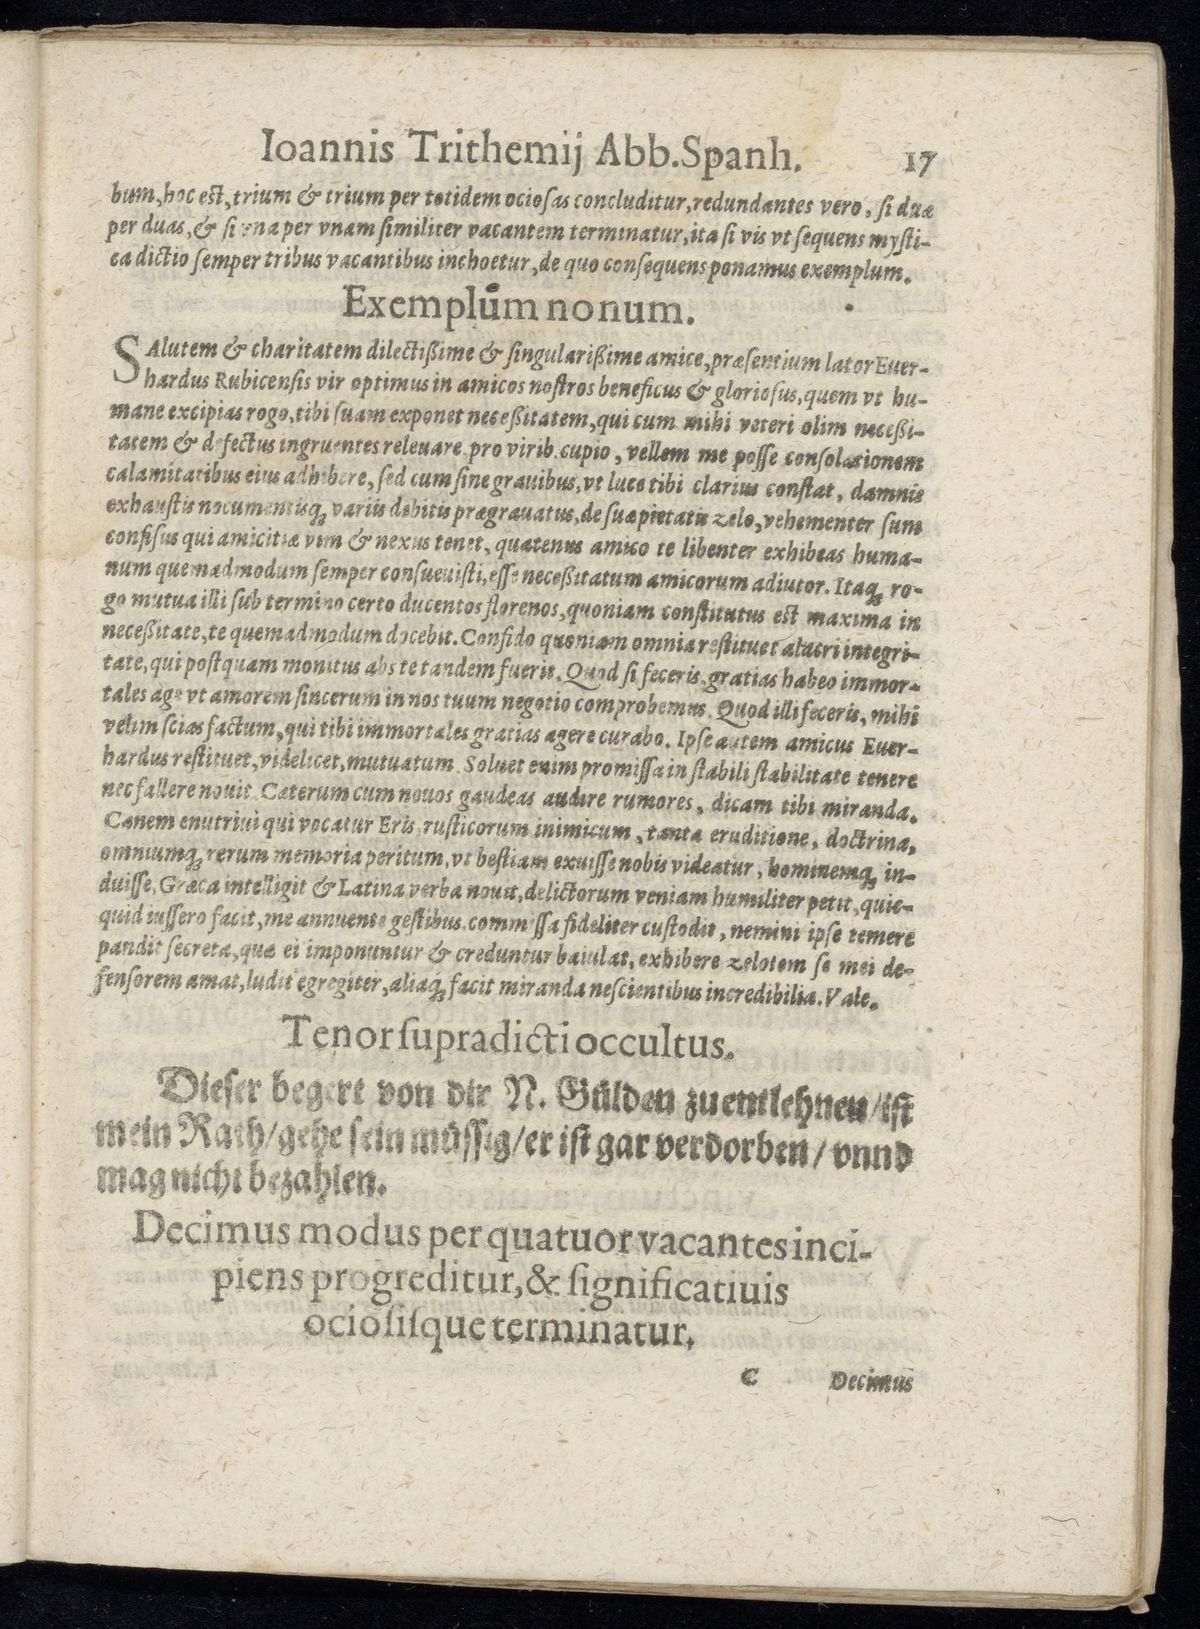 Ioannis Trithemij Abb. Spanh. 17
bum, hoc est, trium & trium per totidem ociosas concluditur, redundantes vero, si duæ
per duas, & si vna per vnam similiter vacantem terminatur, ita si vis vt sequens mysti-
ca dictio semper tribus vacantibus inchoetur, de quo consequens ponamus exemplum.
Exemplum nonum.
SAlutem & charitatem dilectißime & singularißime amice, præsentium lator Euer-
hardus Rubicensis vir optimus in amicos nostros beneficus & gloriosus, quem vt hu-
mane excipias rogo, tibi suam exponet neceßitatem, qui cum mihi veteri olim neceßi-
tatem & defectus ingruentes releuare pro virib. cupio, vellem me posse consolationem
calamitatibus eius adhibere, sed cum sine grauibus, vt luce tibi clarius constat, damnis
exhaustis nocumentisq; variis debitis prægrauatus, de suæ pietatis zelo, vehementer sum
confisus qui amicitiæ vim & nexus tenet, quatenus amico te libenter exhibeas huma-
num quemadmodum semper consueuisti, esse neceßitatum amicorum adiutor. Itaq; ro-
go mutua illi sub termino certo ducentos florenos, quoniam constitutus est maxima in
neceßitate, te quemadmodum docebit. Confido quoniam omnia restituet alacri integri-
tate, qui postquam monitus abs te tandem fuerit. Quod si feceris, gratias habeo immor-
tales age vt amorem sincerum in nos tuum negotio comprobemus. Quod illi feceris, mihi
velim scias factum, qui tibi immortales gratias agere curabo. Ipse autem amicus Euer-
hardus restituet, videlicet, mutuatum. Soluet enim promissa in stabili stabilitate tenere
nec fallere nouit. Cæterum cum nouos gaudeas audire rumores, dicam tibi miranda.
Canem enutriui qui vocatur Eris, rusticorum inimicum, tanta eruditione, doctrina,
omniumq; rerum memoria peritum, vt bestiam exuisse nobis videatur, hominemq; in-
duisse, Græca intelligit & Latina verba nouit, delictorum veniam humiliter petit, quic-
quid iussero facit, me annuente gestibus, commissa fideliter custodit, nemini ipse temere
pandit secreta, quæ ei imponuntur & creduntur baiulat, exhibere zelotem se mei de-
fensorem amat, ludit egregiter, aliaq; facit miranda nescientibus incredibilia. Vale.
Tenor supradicti occultus.
Dieser begert von dir N. Gülden zu entlehnen / ist
mein Rath / gehe sein müssig / er ist gar verdorben / vnnd
mag nicht bezahlen.
Decimus modus per quatuor vacantes inci-
piens progreditur, & significatiuis
ociosisque terminatur.
C Decimus